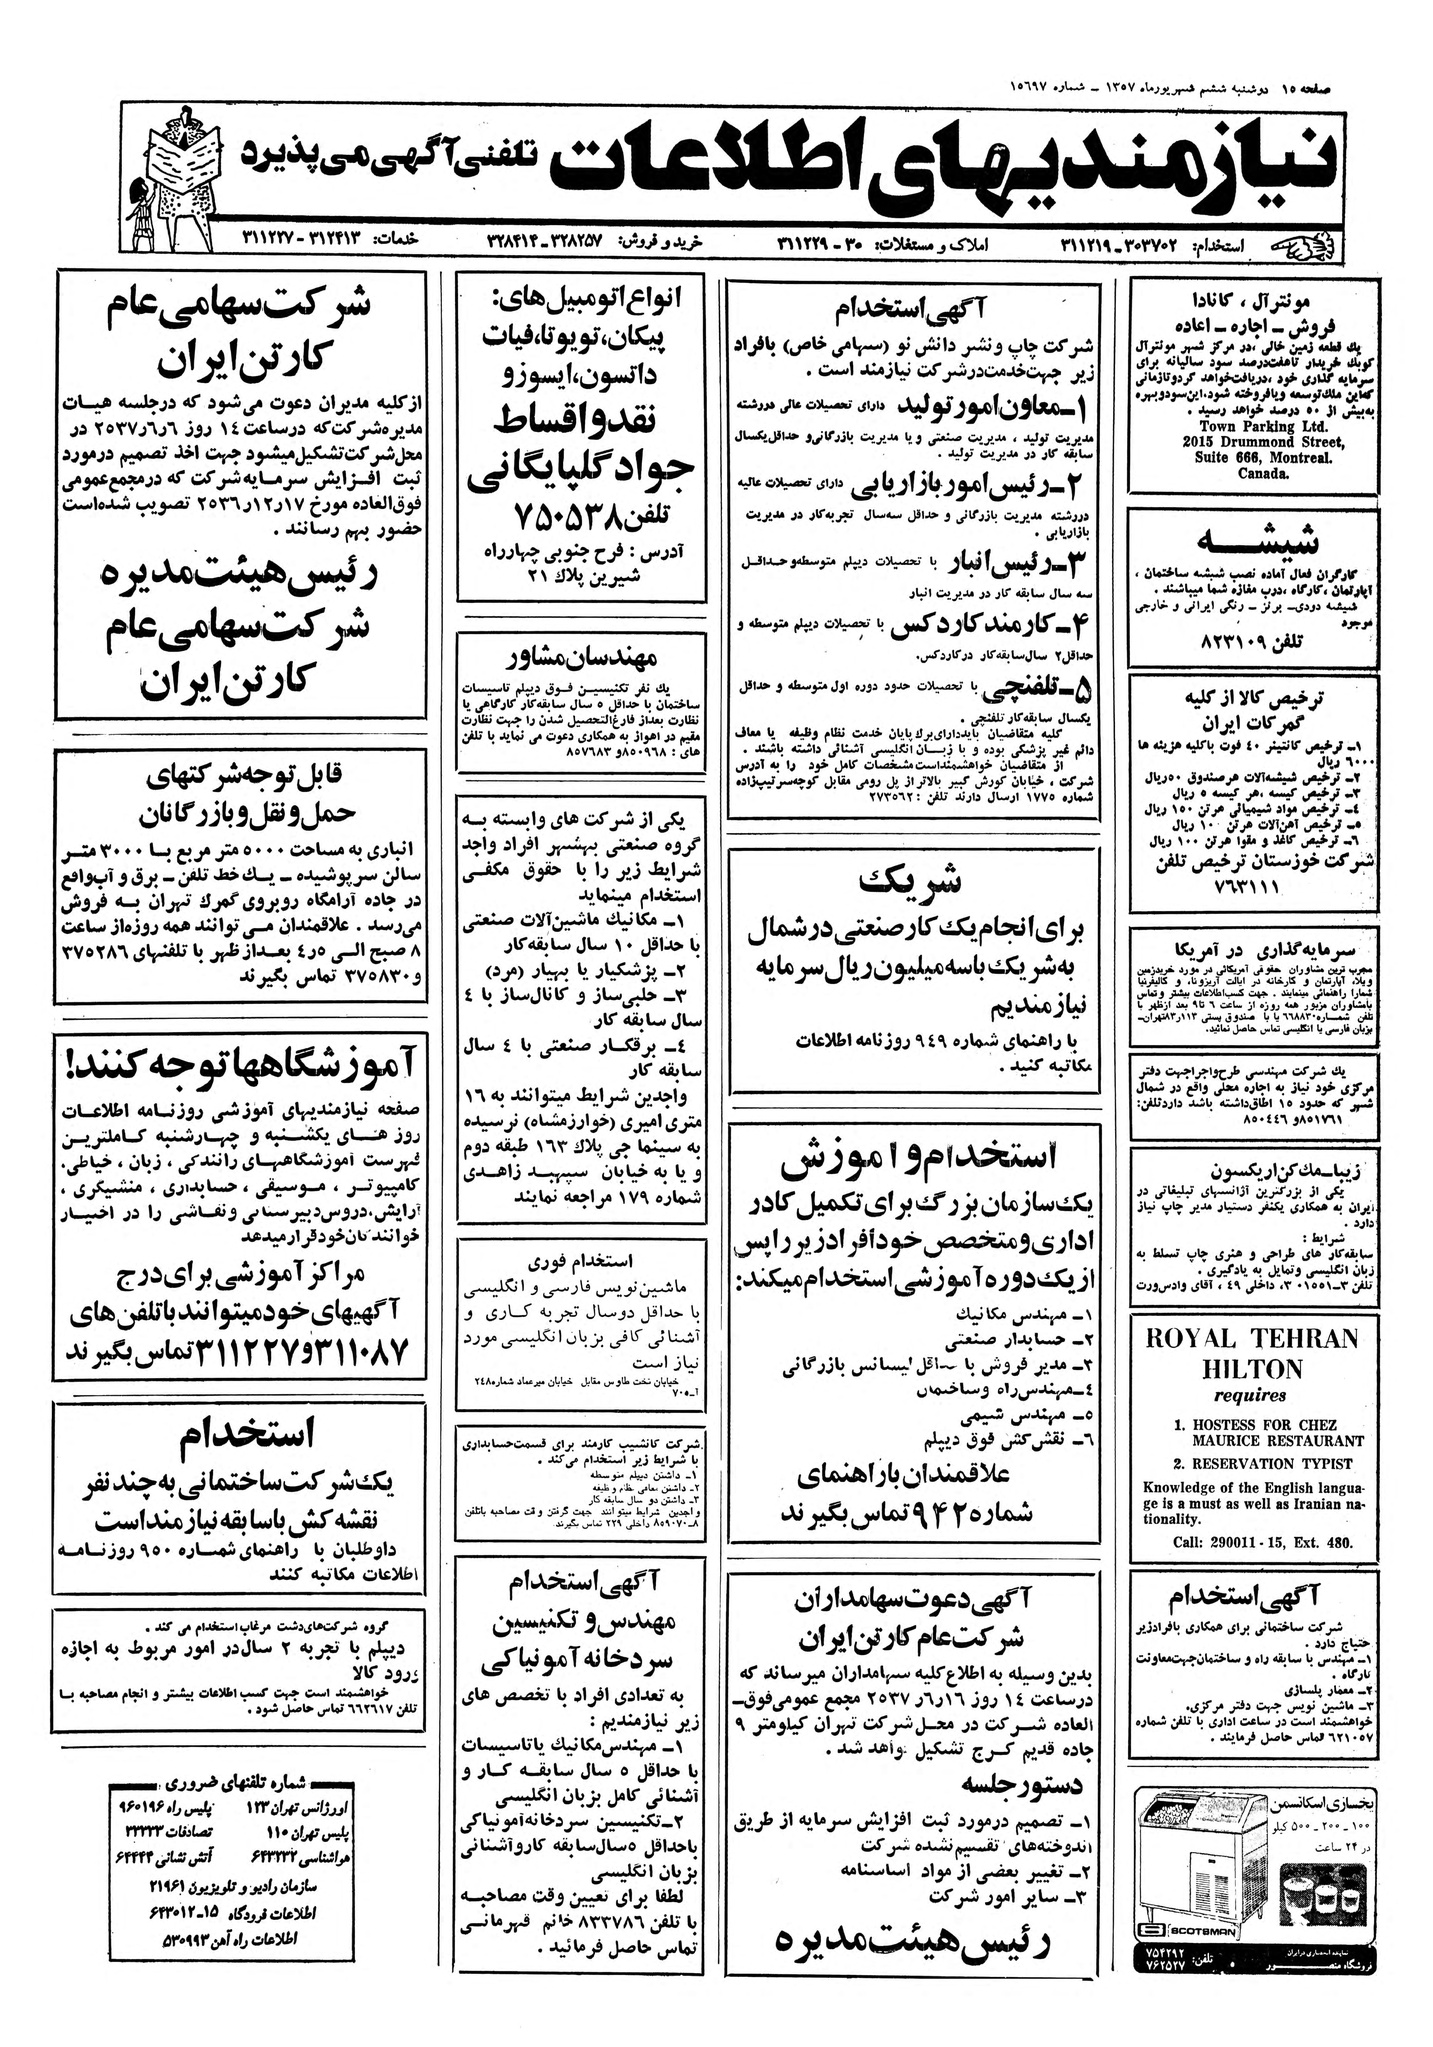 صفحه ۱۵ دوشنبه ششم شهریورماه ۱۳۵۷ - شماره ۱۵۶۹۷
نیازمندیهای اطلاعات تلفنی آگهی می پذیرد
استخدام: ۳۰۳۷۰۲-۳۱۱۲۱۹ املاک و مستغلات: ۳۰-۳۱۱۲۲۹ خرید و فروش: ۳۲۸۲۵۷-۳۲۸۴۱۴ خدمات: ۳۱۲۴۱۳-۳۱۱۲۲۷
مونترآل ، کانادا
فروش - اجاره - اعاده
یك قطعه زمین خالی ، در مرکز شهر مونترآل
کوبك خریدار تاهفت‌درصد سود سالیانه برای
سرمایه گذاری خود ، دریافت‌خواهد کردوتازمانی
که‌این ملك‌توسعه ویافروخته شود،این‌سودوبهره
به‌بیش از ۵۰ درصد خواهد رسید .
Town Parking Ltd.
2015 Drummond Street,
Suite 666, Montreal.
Canada.
شیشه
کارگران فعال آماده نصب شیشه ساختمان ،
آپارتمان ، کارگاه ، درب مغازه شما میباشند .
شیشه دودی- برنز - رنگی ایرانی و خارجی
موجود
تلفن ۸۲۳۱۰۹
ترخیص کالا از کلیه
گمرکات ایران
۱- ترخیص کانتینر ۴۰ فوت باکلیه هزینه ها
۶۰۰۰ ریال
۲- ترخیص شیشه‌آلات هرصندوق ۵۰ریال
۳- ترخیص کیسه ،هر کیسه ۵ ریال
۴- ترخیص مواد شیمیائی هرتن ۱۵۰ ریال
۵- ترخیص آهن‌آلات هرتن ۱۰۰ ریال
۶- ترخیص کاغذ و مقوا هرتن ۱۰۰ ریال
شرکت خوزستان ترخیص تلفن
۷۶۳۱۱۱
سرمایه‌گذاری در آمریکا
مجرب ترین مشاوران حقوقی آمریکائی در مورد خریدزمین
ویلا، آپارتمان و کارخانه در ایالت آریزونا، و کالیفرنیا
شمارا راهنمائی مینمایند . جهت کسب‌اطلاعات بیشتر وتماس
بامشاوران مزبور همه روزه از ساعت ۶ تا۹ بعد ازظهر با
تلفن شماره ۶۶۸۸۳۰ یا با صندوق پستی ۸۳ر۱۱۳تهران-
بزبان فارسی یا انگلیسی تماس حاصل نمائید.
یك شرکت مهندسی طرح‌واجراجهت دفتر
مرکزی خود نیاز به اجاره محلی واقع در شمال
شهر که حدود ۱۵ اطاق‌داشته باشد داردتلفن:
۸۵۱۷۶۱و ۸۵۰۴۴۶
زیبا-مك‌کن‌اریکسون
یکی از بزرگترین آژانسهای تبلیغاتی در
ایران به همکاری یکنفر دستیار مدیر چاپ نیاز
دارد .
شرایط :
سابقه‌کار های طراحی و هنری چاپ تسلط به
زبان انگلیسی وتمایل به یادگیری .
تلفن ۳-۳۰۱۵۵۱، داخلی ۴۹ ، آقای وادس‌ورت
ROYAL TEHRAN
HILTON
requires
1. HOSTESS FOR CHEZ
MAURICE RESTAURANT
2. RESERVATION TYPIST
Knowledge of the English langua-
ge is a must as well as Iranian na-
tionality.
Call: 290011 - 15, Ext. 480.
آگهی استخدام
شرکت ساختمانی برای همکاری بافرادزیر
احتیاج دارد .
۱- مهندس با سابقه راه و ساختمان‌جهت‌معاونت
کارگاه .
۲- معمار پلسازی
۳- ماشین نویس جهت دفتر مرکزی.
خواهشمند است در ساعت اداری با تلفن شماره
۶۲۱۰۵۷ تماس حاصل فرمایند .
یخسازی اسکاتسمن
۱۰۰ - ۲۰۰ - ۵۰۰ کیلو
در ۲۴ ساعت
SCOTSMAN
نماینده انحصاری درایران
فروشگاه منصور تلفن: ۷۵۴۲۹۲
۷۶۲۵۲۷
آگهی استخدام
شرکت چاپ ونشر دانش نو (سهامی خاص) بافراد
زیر جهت‌خدمت‌درشرکت نیازمند است .
۱- معاون امور تولید دارای تحصیلات عالی دررشته
مدیریت تولید ، مدیریت صنعتی و یا مدیریت بازرگانی‌و حداقل‌یکسال
سابقه کار در مدیریت تولید .
۲- رئیس امور بازاریابی دارای تحصیلات عالیه
دررشته مدیریت بازرگانی و حداقل سه‌سال تجربه‌کار در مدیریت
بازاریابی .
۳- رئیس انبار با تحصیلات دیپلم متوسطه‌وحداقل
سه سال سابقه کار در مدیریت انبار
۴- کارمند کاردکس با تحصیلات دیپلم متوسطه و
حداقل۲ سال‌سابقه‌کار درکاردکس.
۵- تلفنچی با تحصیلات حدود دوره اول متوسطه و حداقل
یکسال سابقه‌کار تلفنچی .
کلیه متقاضیان بایددارای‌برك‌پایان خدمت نظام وظیفه یا معاف
دائم غیر پزشکی بوده و با زبان انگلیسی آشنائی داشته باشند .
از متقاضیان خواهشمنداست‌مشخصات کامل خود را به آدرس
شرکت ، خیابان کورش کبیر بالاتر از پل رومی مقابل کوچه‌سرتیپ‌زاده
شماره ۱۷۷۵ ارسال دارند تلفن : ۲۷۳۵۶۲
شریك
برای انجام یك کار صنعتی در شمال
به شریك با سه میلیون ریال سرمایه
نیازمندیم
با راهنمای شماره ۹۴۹ روزنامه اطلاعات
مکاتبه کنید .
استخدام و آموزش
یك سازمان بزرگ برای تکمیل کادر
اداری و متخصص خود افراد زیر را پس
از یك دوره آموزشی استخدام میکند:
۱- مهندس مکانیك
۲- حسابدار صنعتی
۳- مدیر فروش با حداقل لیسانس بازرگانی
۴- مهندس‌راه وساختمان
۵- مهندس شیمی
۶- نقش‌کش فوق دیپلم
علاقمندان با راهنمای
شماره ۹۴۲ تماس بگیرند
آگهی دعوت سهامداران
شرکت عام کارتن ایران
بدین وسیله به اطلاع کلیه سهامداران میرساند که
درساعت ۱۴ روز ۱۶ر۶ر۲۵۳۷ مجمع عمومی‌فوق-
العاده شرکت در محل شرکت تهران کیلومتر ۹
جاده قدیم کرج تشکیل خواهد شد .
دستور جلسه
۱- تصمیم درمورد ثبت افزایش سرمایه از طریق
اندوخته‌های تقسیم‌نشده شرکت
۲- تغییر بعضی از مواد اساسنامه
۳- سایر امور شرکت
رئیس هیئت مدیره
انواع اتومبیل های:
پیکان، تویوتا، فیات
داتسون، ایسوزو
نقد و اقساط
جواد گلپایگانی
تلفن ۷۵۰۵۳۸
آدرس : فرح جنوبی چهارراه
شیرین پلاك ۲۱
مهندسان مشاور
یك نفر تکنیسین فوق دیپلم تاسیسات
ساختمان با حداقل ۵ سال سابقه‌کار کارگاهی یا
نظارت بعداز فارغ‌التحصیل شدن را جهت نظارت
مقیم در اهواز به همکاری دعوت می نماید با تلفن
های : ۸۵۰۹۶۸و ۸۵۷۶۸۳
یکی از شرکت های وابسته به
گروه صنعتی بهشهر افراد واجد
شرایط زیر را با حقوق مکفی
استخدام مینماید
۱- مکانیك ماشین‌آلات صنعتی
با حداقل ۱۰ سال سابقه‌کار
۲- پزشکیار یا بهیار (مرد)
۳- حلبی‌ساز و کانال‌ساز با ۴
سال سابقه کار
۴- برقکار صنعتی با ۴ سال
سابقه کار
واجدین شرایط میتوانند به ۱۶
متری امیری (خوارزمشاه) نرسیده
به سینما جی پلاك ۱۶۳ طبقه دوم
و یا به خیابان سپهبد زاهدی
شماره ۱۷۹ مراجعه نمایند
استخدام فوری
ماشین‌نویس فارسی و انگلیسی
با حداقل دوسال تجربه کاری و
آشنائی کافی بزبان انگلیسی مورد
نیاز است
خیابان تخت طاوس مقابل خیابان میرعماد شماره۲۴۸
آ-۷۰۵
شرکت کانشیپ کارمند برای قسمت‌حسابداری
با شرایط زیر استخدام می‌کند .
۱- داشتن دیپلم متوسطه
۲- داشتن معافی نظام وظیفه
۳- داشتن دو سال سابقه کار
واجدین شرایط میتوانند جهت گرفتن وقت مصاحبه باتلفن
۸-۸۵۹۰۷۰ داخلی ۲۲۹ تماس بگیرند.
آگهی استخدام
مهندس و تکنیسین
سردخانه آمونیاکی
به تعدادی افراد با تخصص های
زیر نیازمندیم :
۱- مهندس‌مکانیك یاتاسیسات
با حداقل ۵ سال سابقه کار و
آشنائی کامل بزبان انگلیسی
۲-تکنیسین سردخانه‌آمونیاکی
باحداقل ۵سال‌سابقه کاروآشنائی
بزبان انگلیسی
لطفا برای تعیین وقت مصاحبه
با تلفن ۸۳۳۷۸۶ خانم قهرمانی
تماس حاصل فرمائید .
شرکت سهامی عام
کارتن ایران
از کلیه مدیران دعوت می‌شود که درجلسه هیات
مدیره‌شرکت‌که درساعت ۱۴ روز ۶ر۶ر۲۵۳۷ در
محل‌شرکت‌تشکیل‌میشود جهت اخذ تصمیم درمورد
ثبت افزایش سرمایه‌شرکت که درمجمع‌عمومی
فوق‌العاده مورخ ۱۷ر۱۲ر۲۵۳۶ تصویب شده‌است
حضور بهم رسانند .
رئیس هیئت مدیره
شرکت سهامی عام
کارتن ایران
قابل توجه شرکتهای
حمل و نقل و بازرگانان
انباری به مساحت ۵۰۰۰ متر مربع با ۳۰۰۰ متر
سالن سرپوشیده - یك خط تلفن - برق و آب‌واقع
در جاده آرامگاه روبروی گمرك تهران به فروش
می‌رسد . علاقمندان می توانند همه روزه‌از ساعت
۸ صبح الی ۵ر۴ بعداز ظهر با تلفنهای ۳۷۵۲۸۶
و ۳۷۵۸۳۰ تماس بگیرند
آموزشگاهها توجه کنند!
صفحه نیازمندیهای آموزشی روزنامه اطلاعات
روز های یکشنبه و چهارشنبه کاملترین
فهرست آموزشگاههای رانندگی ، زبان ، خیاطی،
کامپیوتر ، موسیقی ، حسابداری ، منشیگری ،
آرایش، دروس‌دبیرستانی ونقاشی را در اختیار
خوانندگان‌خودقرارمیدهد
مراکز آموزشی برای درج
آگهیهای خود میتوانند با تلفن های
۳۱۱۰۸۷و۳۱۱۲۲۷ تماس بگیرند
استخدام
یك شرکت ساختمانی به چند نفر
نقشه کش با سابقه نیازمند است
داوطلبان با راهنمای شماره ۹۵۰ روزنامه
اطلاعات مکاتبه کنند
گروه شرکت‌های‌دشت مرغاب استخدام می کند .
دیپلم با تجربه ۲ سال‌در امور مربوط به اجازه
ورود کالا
خواهشمند است جهت کسب اطلاعات بیشتر و انجام مصاحبه با
تلفن ۶۶۲۶۱۷ تماس حاصل شود .
شماره تلفنهای ضروری
اورژانس تهران ۱۲۳ پلیس راه ۹۶۰۱۹۶
پلیس تهران ۱۱۰ تصادفات ۲۲۲۲۲
هواشناسی ۶۴۳۲۳۲ آتش نشانی ۶۴۴۴۴
سازمان رادیو و تلویزیون ۲۱۹۶۱
اطلاعات فرودگاه ۱۵-۶۴۳۰۱۲
اطلاعات راه آهن ۵۳۰۹۹۳